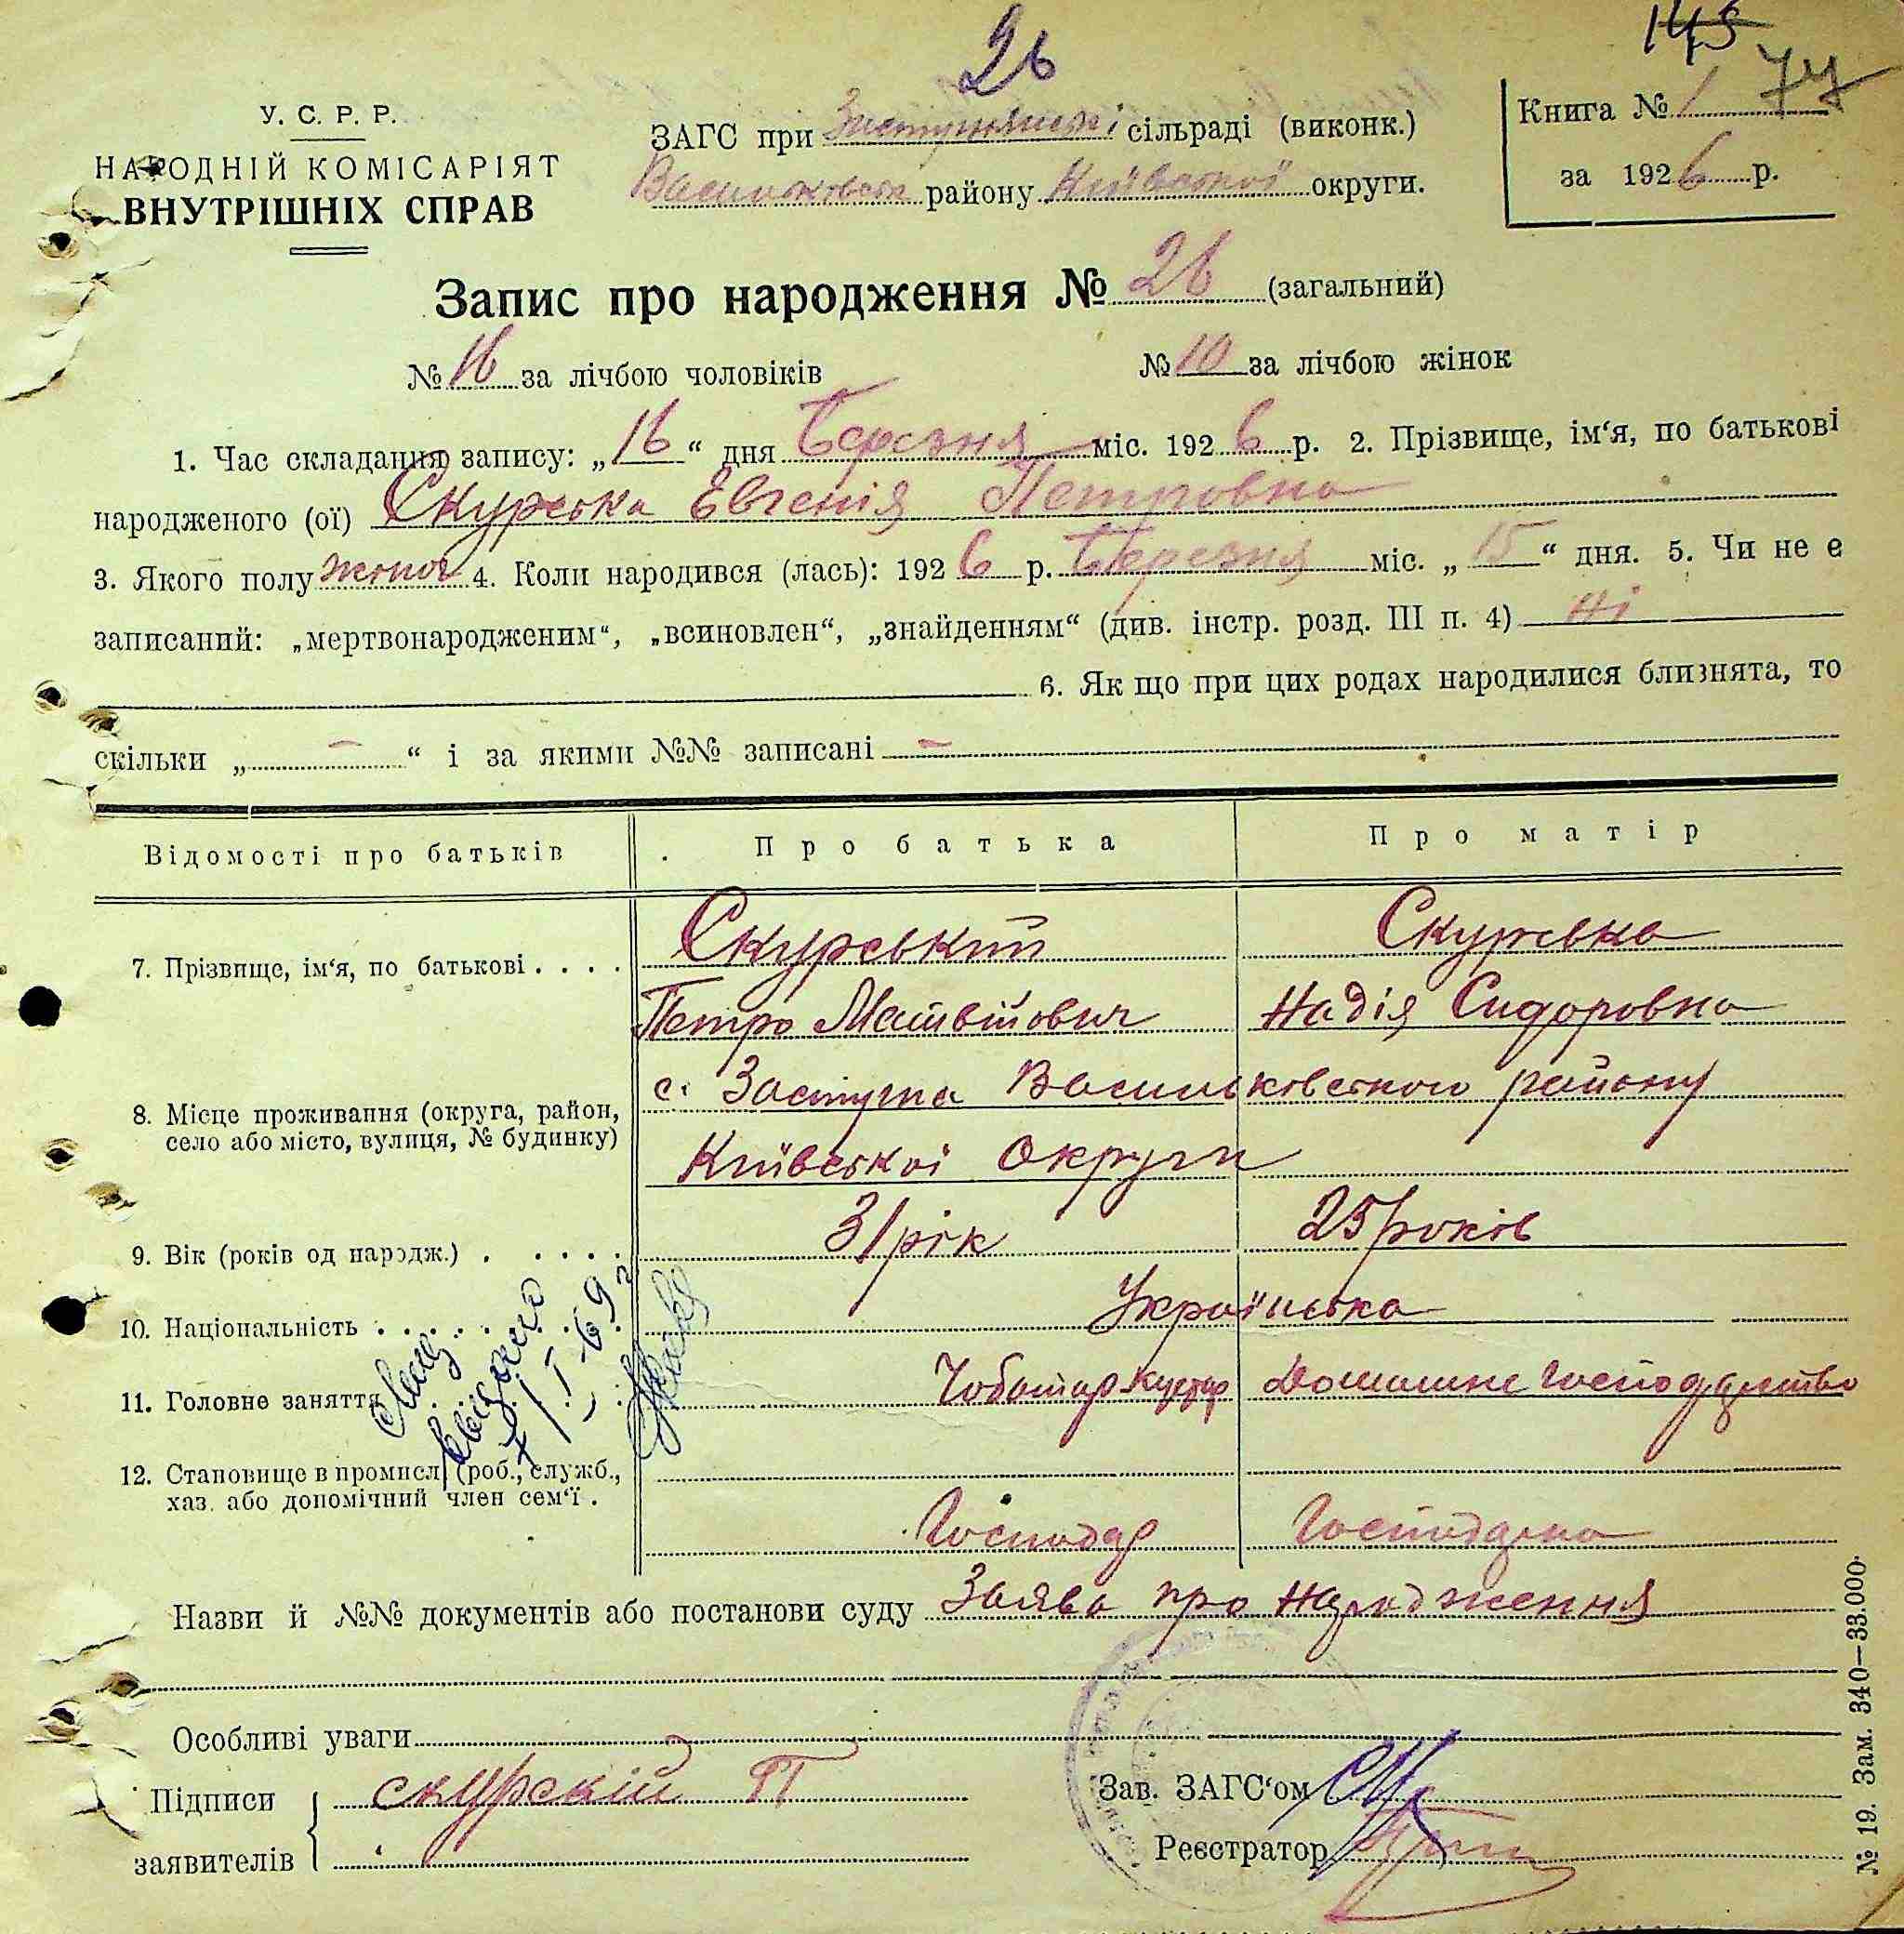 26
145
74
У. С. Р. Р.
НАРОДНІЙ КОМІСАРІЯТ
ВНУТРІШНІХ СПРАВ
ЗАГС при сільраді (виконк.)
району Київської округи.
Книга № 1
за 1926 р.
Запис про народження № 26 (загальний)
№ 16 за лічбою чоловіків № 10 за лічбою жінок
1. Час складання запису: „16“ дня Березня міс. 1926 р. 2. Прізвище, ім‘я, по батькові
народженого (ої) Скурська Евгенія Петровна
3. Якого полу жіноч 4. Коли народився (лась): 1926 р. Березня міс. „15“ дня. 5. Чи не е
записаний: „мертвонародженим“, „всиновлен“, „знайденням“ (див. інстр. розд. III п. 4) ні
6. Як що при цих родах народилися близнята, то
скільки „ – “ і за якими №№ записані –
Відомості про батьків Про батька Про матір
7. Прізвище, ім‘я, по батькові . . . . Скурський Скурська
Петро Матвійович Надія Сидоровна
8. Місце проживання (округа, район, село або місто, вулиця, № будинку) с. Застугна Васильковського району
Київської Округи
9. Вік (років од народж.) . . . . . 31 рік 25 років
10. Національність . . . . . . . Українська
11. Головне заняття Чоботар кустар Домашнє господарство
12. Становище в промислі (роб., служб.,
хаз. або допомічний член сем‘ї .
Господар Господарка
Назви й №№ документів або постанови суду Заява про народження
Особливі уваги
Підписи скурскій П
заявителів
Зав. ЗАГС‘ом
Реєстратор
№ 19. Зам. 340—33.000.